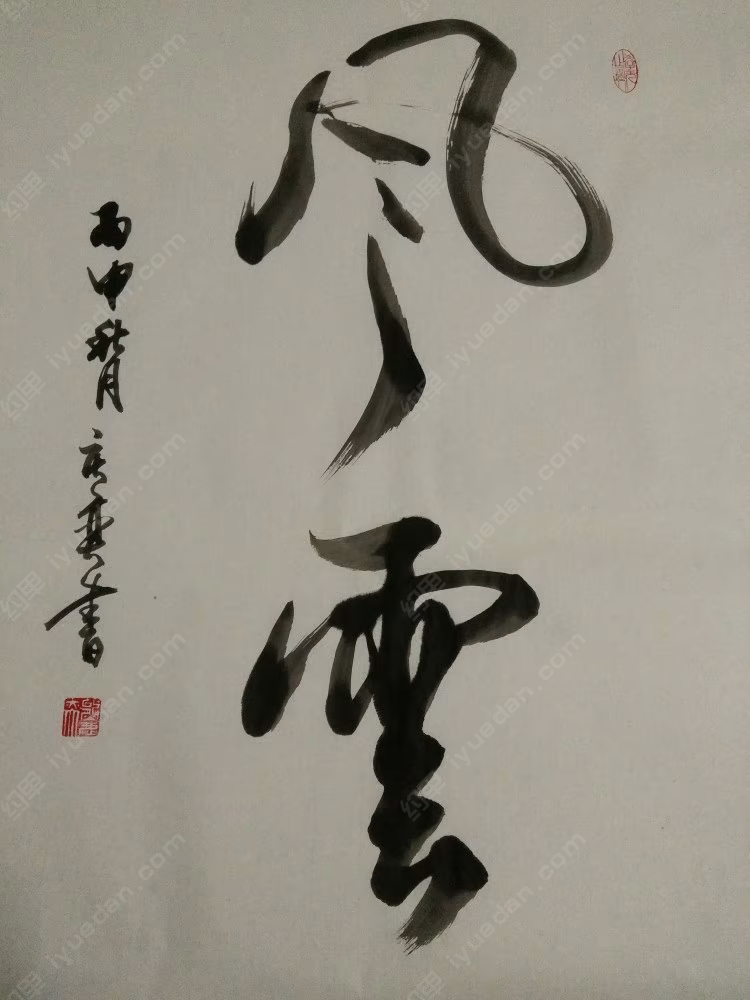 风雲
丙申秋月
书
约单 iyuedan.com